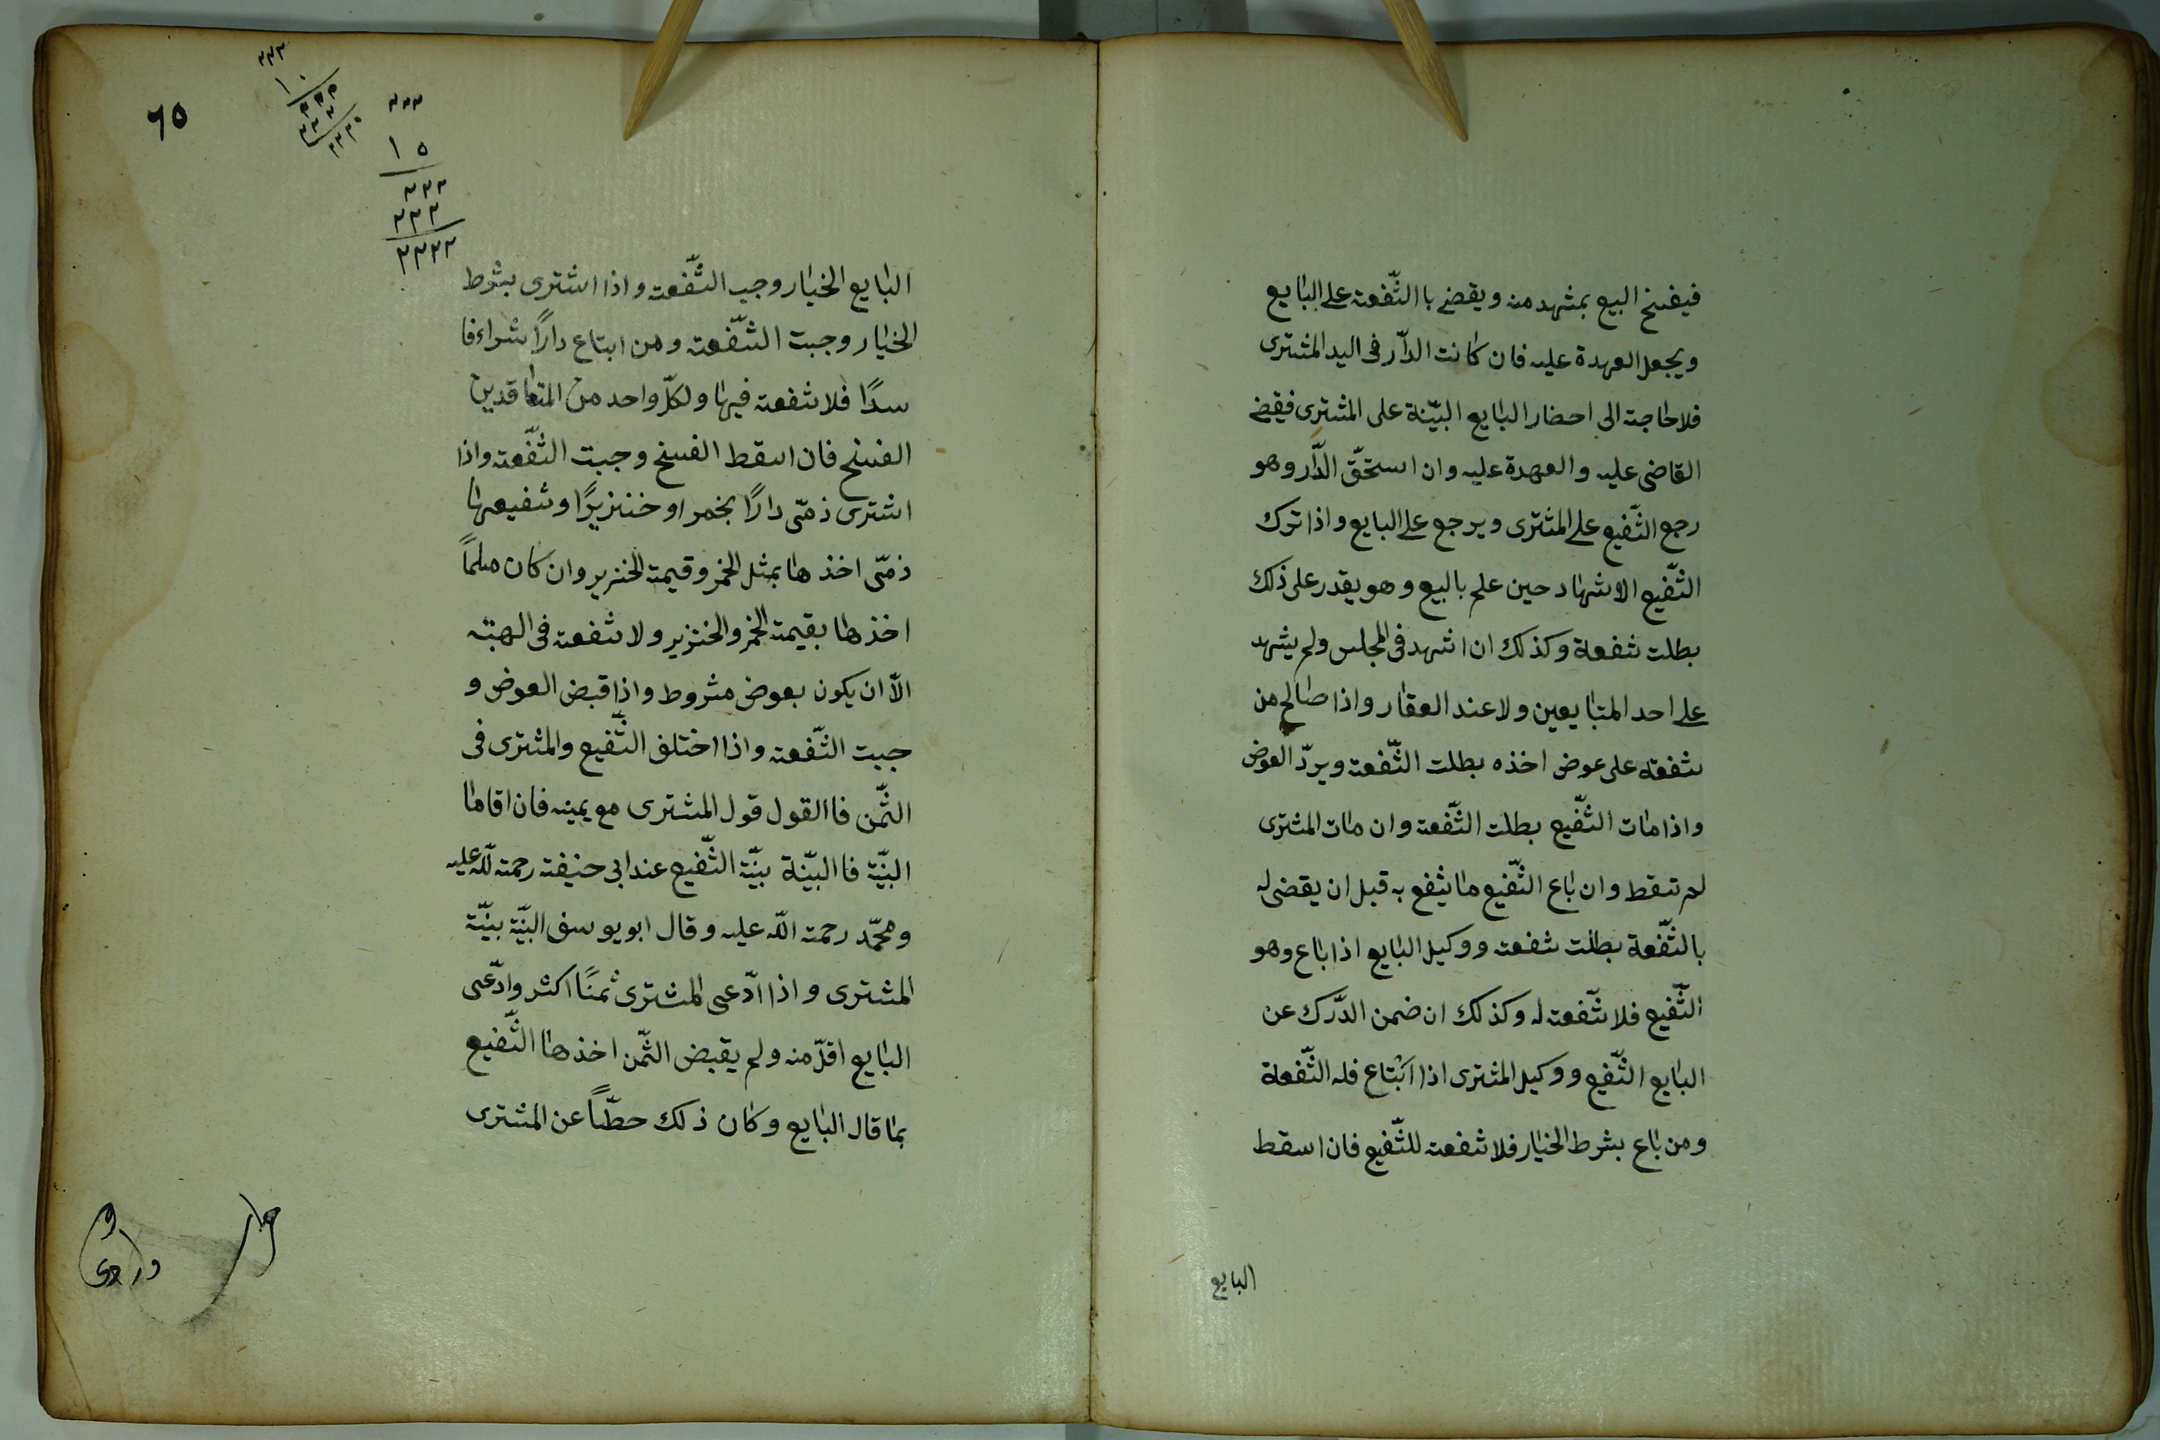 فيفسخ البيع بمشهد منه ويقضے باالشّفعة علے البايع
ويجعل العهدة عليه فان كانت الدّار فى اليد المشترى
فلا حاجة الى احضار البايع البيّنة على المشترى فيقضے
القاضى عليه والعهدة عليه وان استحقّ الدّار وهو
رجع الشّفيع علے المشترى ويرجع علے البايع واذا ترك
الشّفيع الاشهاد حين علم بالبيع وهو يقدر على ذلك
بطلت شفعة وكذلك ان اشهد فى المجلس ولم يشهد
علے احد المتبايعين ولا عند العقار واذا صالح من
شفعته على عوض اخذه بطلت الشّفعة ويردّ العوض
واذا مات الشّفيع بطلت الشّفعة وان مات المشترى
لم تسقط وان باع الشّفيع ما يشفع به قبل ان يقضى له
بالشّفعة بطلت شفعته ووكيل البايع اذا باع وهو
الشّفيع فلا شّفعة له وكذلك ان ضمن الدّرك عن
البايع الشّفيع ووكيل المشترى اذا ابتاع فله الشّفعة
ومن باع بشرط الخيار فلا شفعة للشّفيع فان اسقط
البايع
٦٥
٢٢٢
١٥
٢٢٢
٢٢٢
٢٣٢٢
البايع الخيار وجب الشّفعة واذا اشترى بشرط
الخيار وجبت الشّفعة ومن ابتاع دارًا شراء فا
سدًا فلا شفعة فيها ولكلّ واحد من المتعاقدين
الفسخ فان اسقط الفسخ وجبت الشّفعة واذا
اشترى ذمّى دارًا بخمر او خنزيرًا وشفيعها
ذمّى اخذها بمثل الخمر وقيمة الخنزير وان كان مسلماً
اخذها بقيمة الخمر والخنزير ولا شفعة فى الهبة
الّا ان يكون بعوض مشروط واذا قبض العوض و
جبت الشّفعة واذا اختلف الشّفيع والمشترى فى
الثّمن فاالقول قول المشترى مع يمينه فان اقاما
البيّنة فا البيّنة بيّنة الشّفيع عند ابى حنيفة رحمة للّه عليه
ومحمّد رحمة اللّه عليه وقال ابو يوسف البيّنة بيّنة
المشترى واذا ادّعى المشترى ثمنًا اكثر وادّعى
البايع اقلّ منه ولم يقبض الثّمن اخذها الشّفيع
بما قال البايع وكان ذلك حطّاً عن المشترى